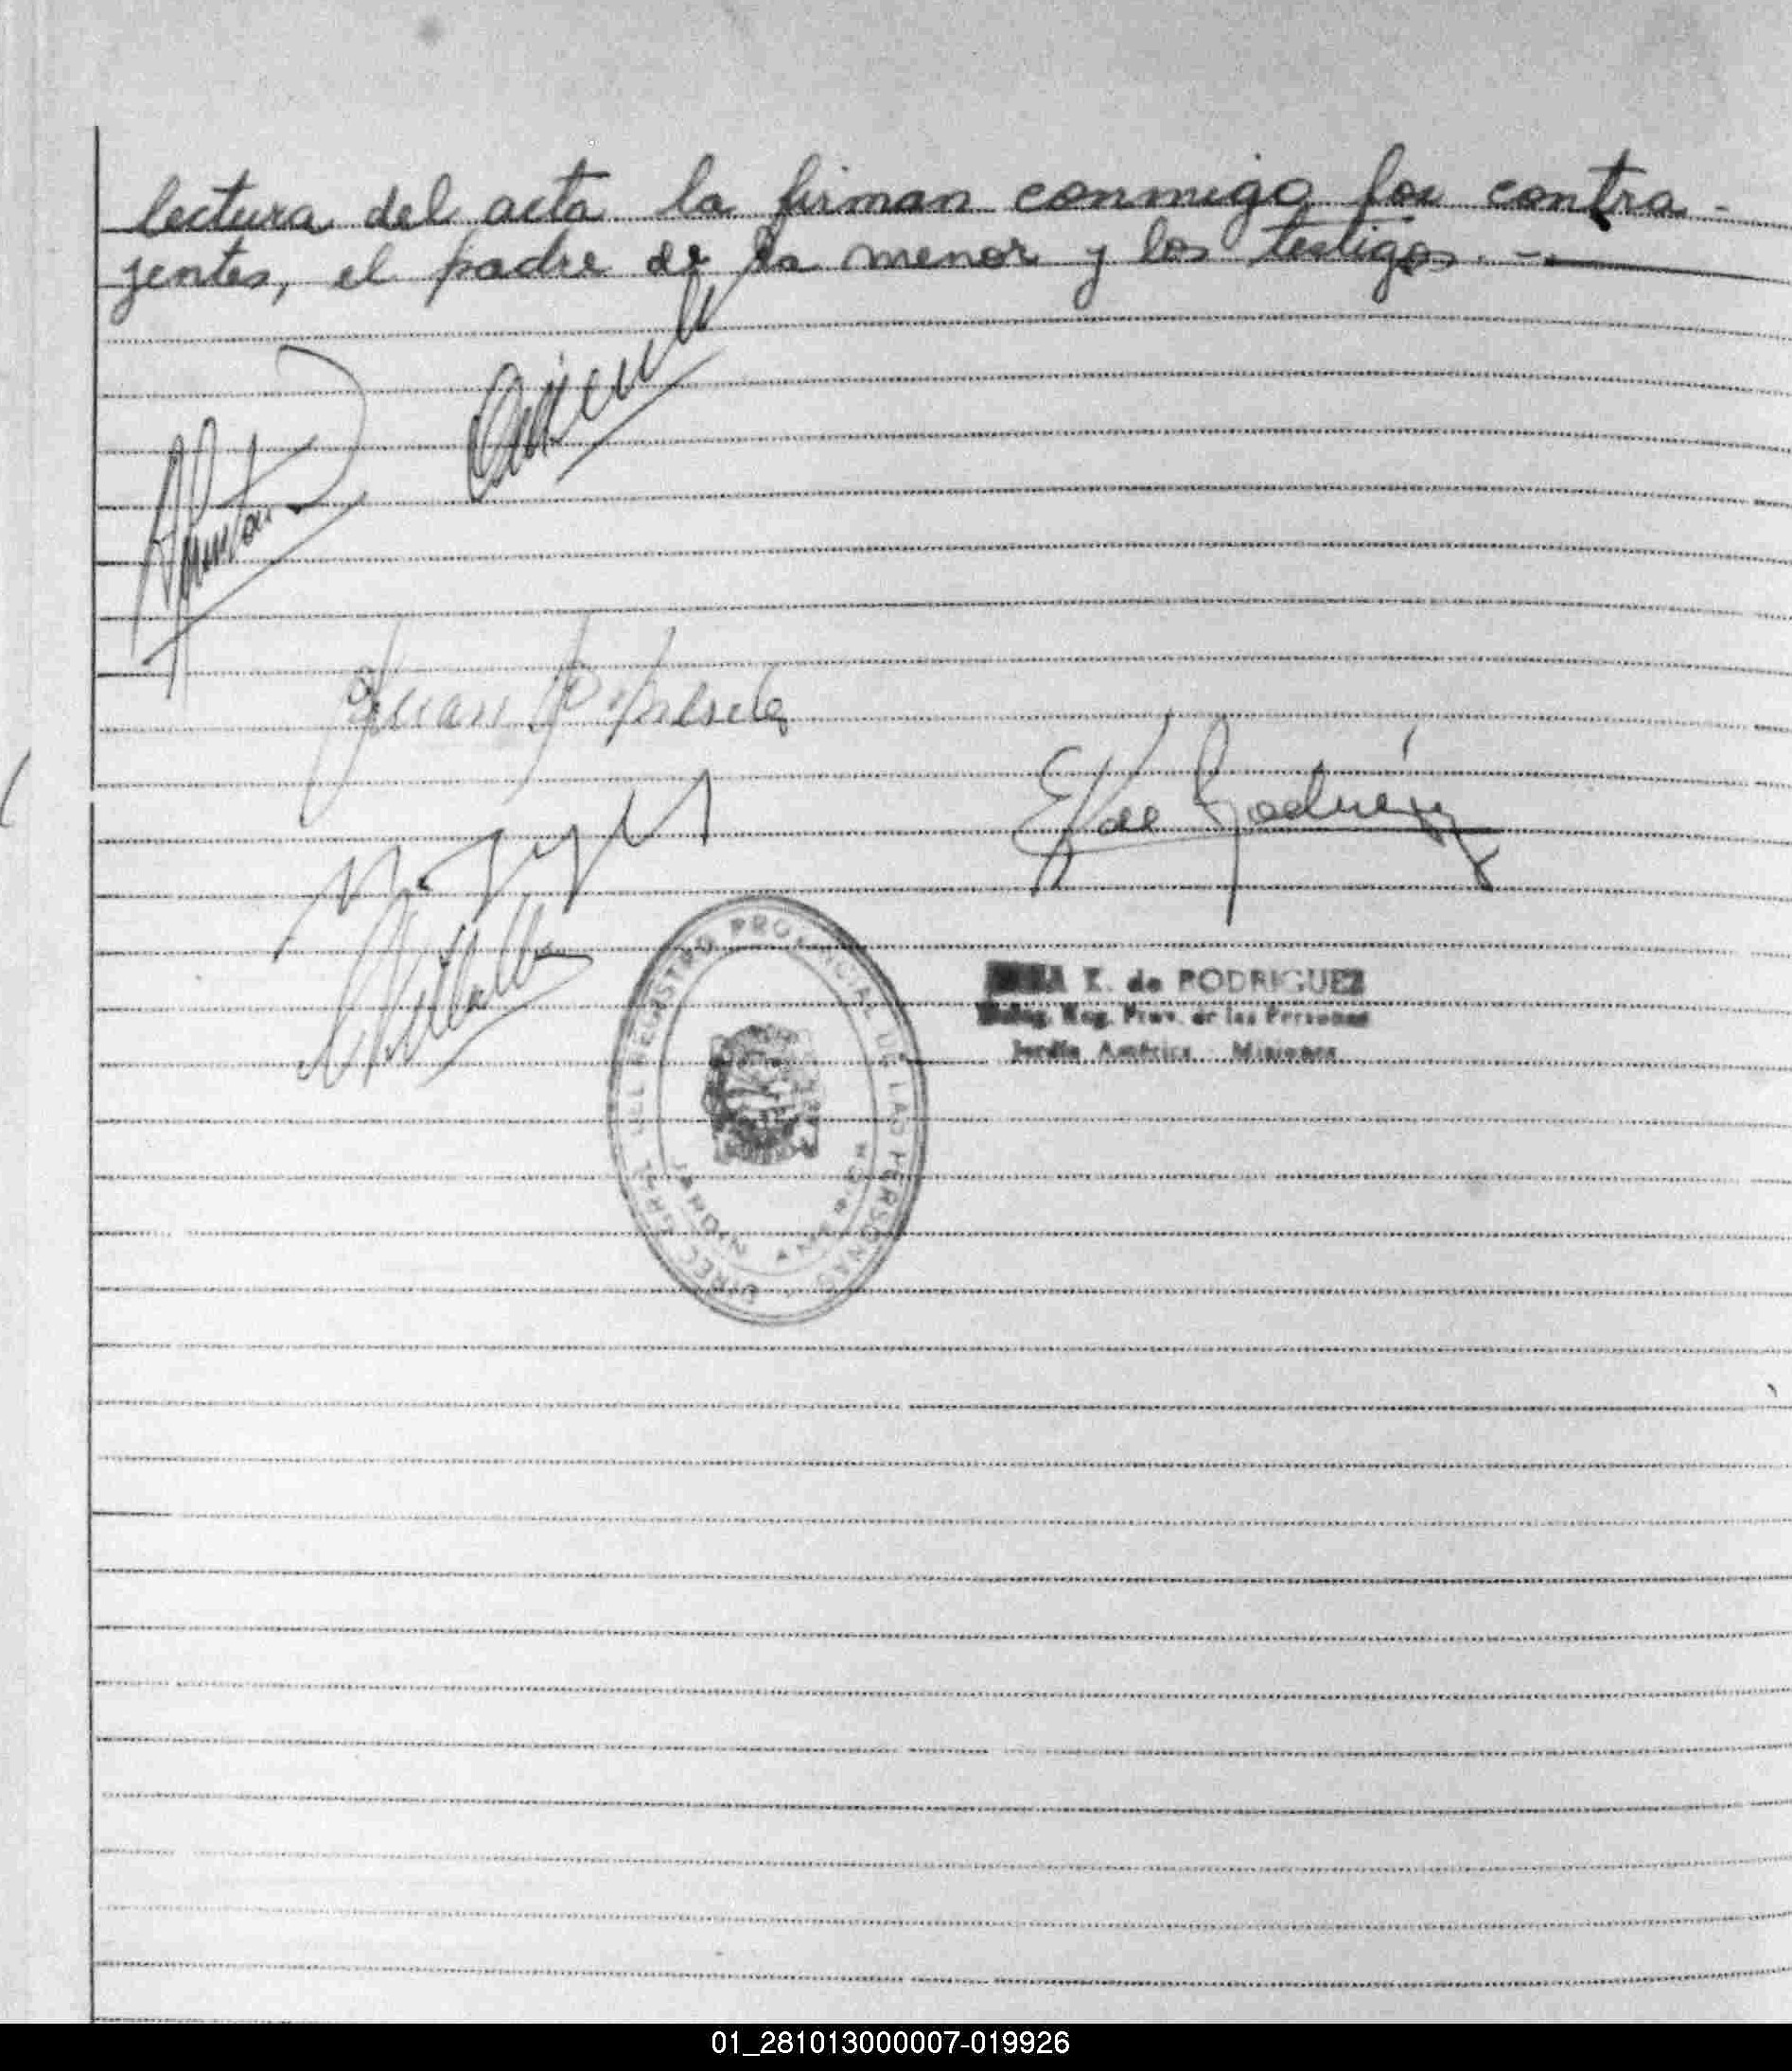 lectura del acta la firman conmigo los contra-
jentes, el padre de la menor y los testigos. -
Juan
E K de Rodriguez
DIREC. GRAL. DEL REGISTRO PROVINCIAL DE LAS PERSONAS
JARDIN AMERICA
K. de RODRIGUEZ
Deleg. Reg. Prov. de las Personas
Jardín América - Misiones
01_281013000007-019926